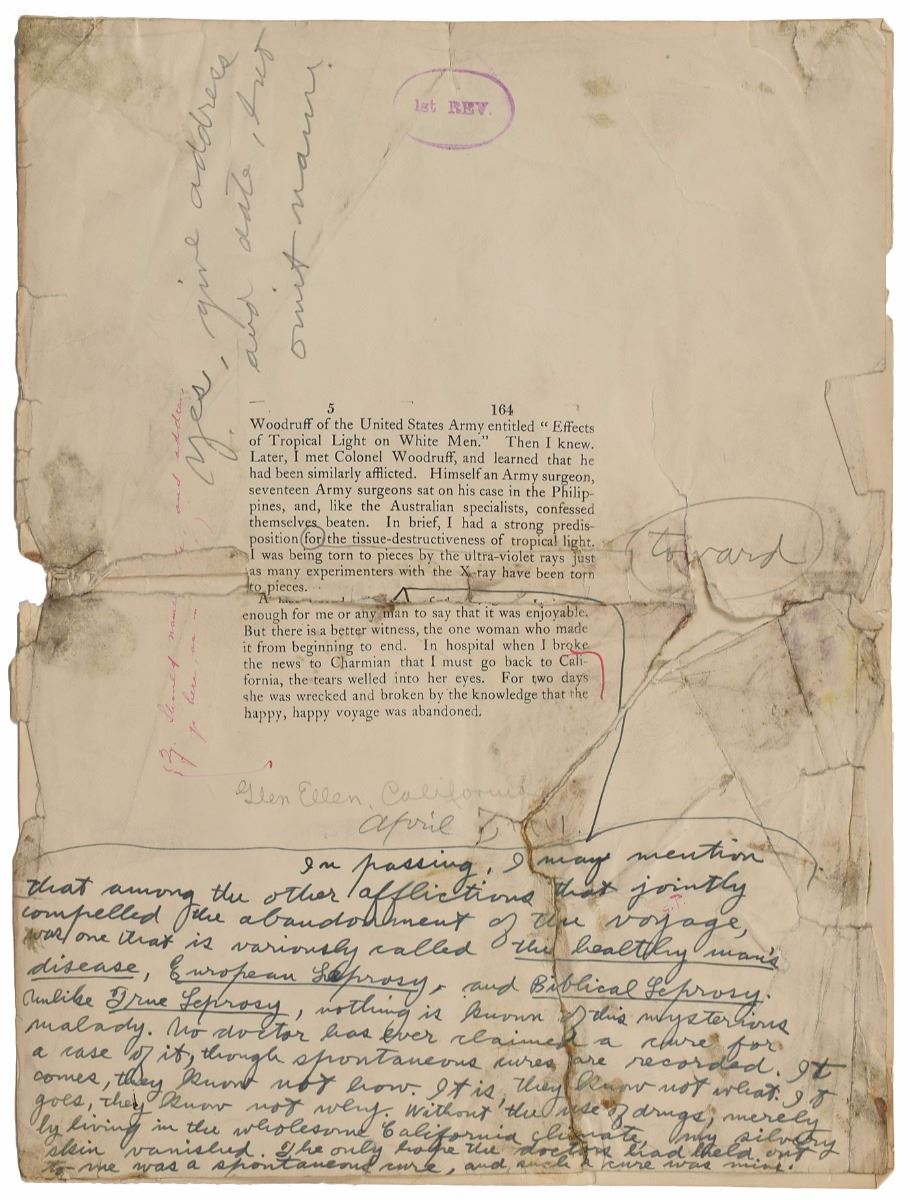 1st REV.
Yes, give address
and date, but
omit name.
5 164
Woodruff of the United States Army entitled “Effects
of Tropical Light on White Men.” Then I knew.
Later, I met Colonel Woodruff, and learned that he
had been similarly afflicted. Himself an Army surgeon,
seventeen Army surgeons sat on his case in the Philip-
pines, and, like the Australian specialists, confessed
themselves beaten. In brief, I had a strong predis-
position for the tissue-destructiveness of tropical light.
I was being torn to pieces by the ultra-violet rays just
as many experimenters with the X-ray have been torn
to pieces.
toward
enough for me or any man to say that it was enjoyable.
But there is a better witness, the one woman who made
it from beginning to end. In hospital when I broke
the news to Charmian that I must go back to Cali-
fornia, the tears welled into her eyes. For two days
she was wrecked and broken by the knowledge that the
happy, happy voyage was abandoned.
Should name and address
go here
Glen Ellen, California
April
In passing, I may mention
that among the other afflictions that jointly
compelled the abandonment of the voyage,
was one that is variously called the healthy man's
disease, European Leprosy, and Biblical Leprosy.
Unlike True Leprosy, nothing is known of this mysterious
malady. No doctor has ever claimed a cure for
a case of it, though spontaneous cures are recorded. It
comes, they know not how. It is, they know not what. It
goes, they know not why. Without the use of drugs, merely
by living in the wholesome California climate, my silvery
skin vanished. The only hope the doctors had held out
to me was a spontaneous cure, and such a cure was mine.